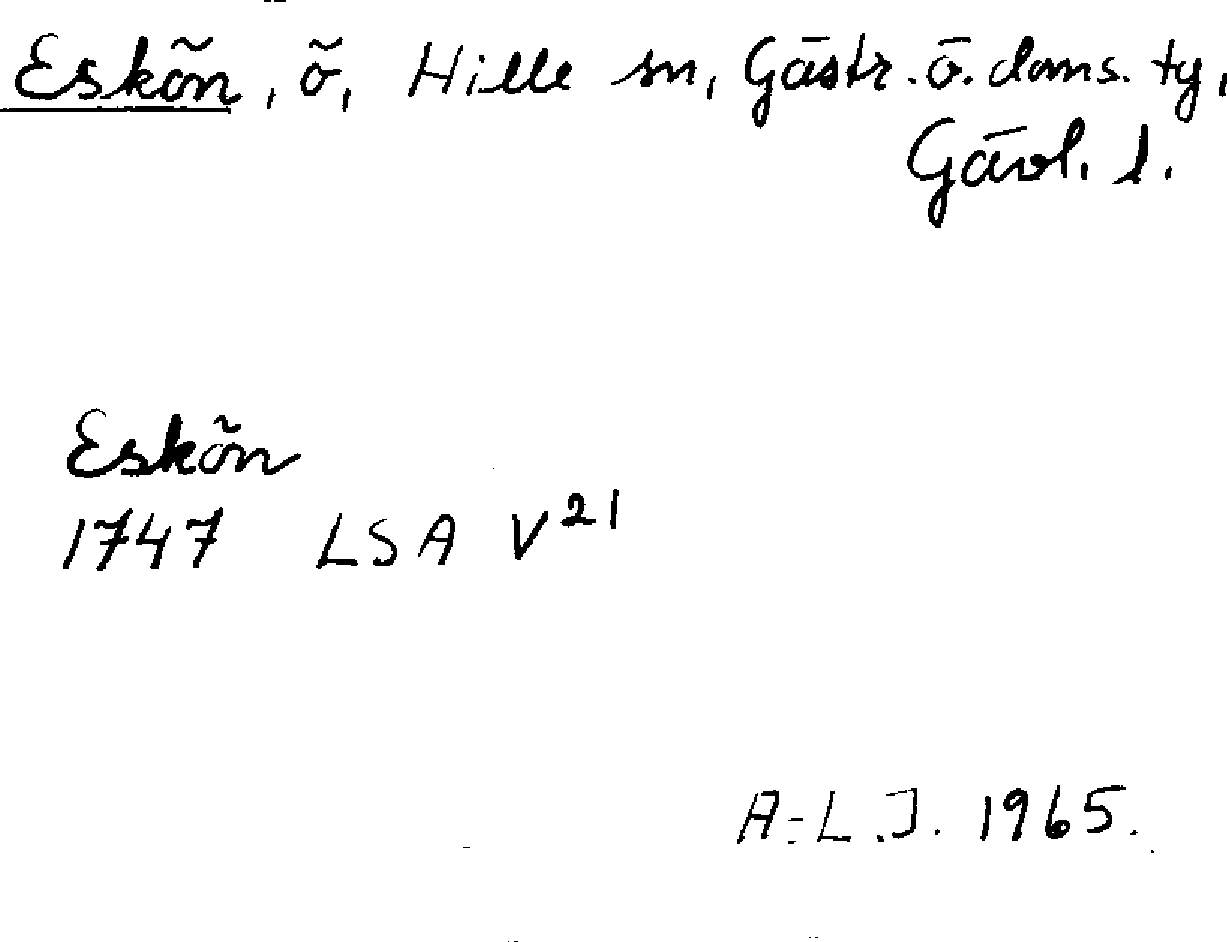 Eskön, ö, Hille sn, Gästr. ö. doms. ty,
Gävl. l.
Eskön
1747 LSA V²¹
A-L.J. 1965.